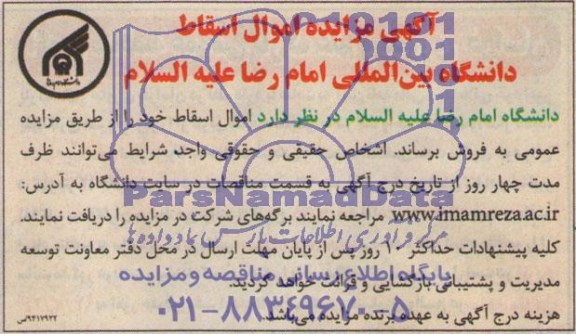 آگهی مزایده اموال اسقاط
دانشگاه بین‌المللی امام رضا علیه السلام
دانشگاه امام رضا علیه السلام در نظر دارد اموال اسقاط خود را از طریق مزایده
عمومی به فروش برساند. اشخاص حقیقی و حقوقی واجد شرایط می‌توانند ظرف
مدت چهار روز از تاریخ درج آگهی به قسمت مناقصات در سایت دانشگاه به آدرس:
ParsNamadData
www.imamreza.ac.ir مراجعه نمایند برگه‌های شرکت در مزایده را دریافت نمایند.
کلیه پیشنهادات حداکثر ۱۰ روز پس از پایان مهلت ارسال در محل دفتر معاونت توسعه
پایگاه اطلاع رسانی مناقصه و مزایده
مدیریت و پشتیبانی بازگشایی و قرائت خواهد گردید.
۰۲۱-۸۸۳۴۹۶۷۰-۵
هزینه درج آگهی به عهده برنده مزایده می‌باشد.